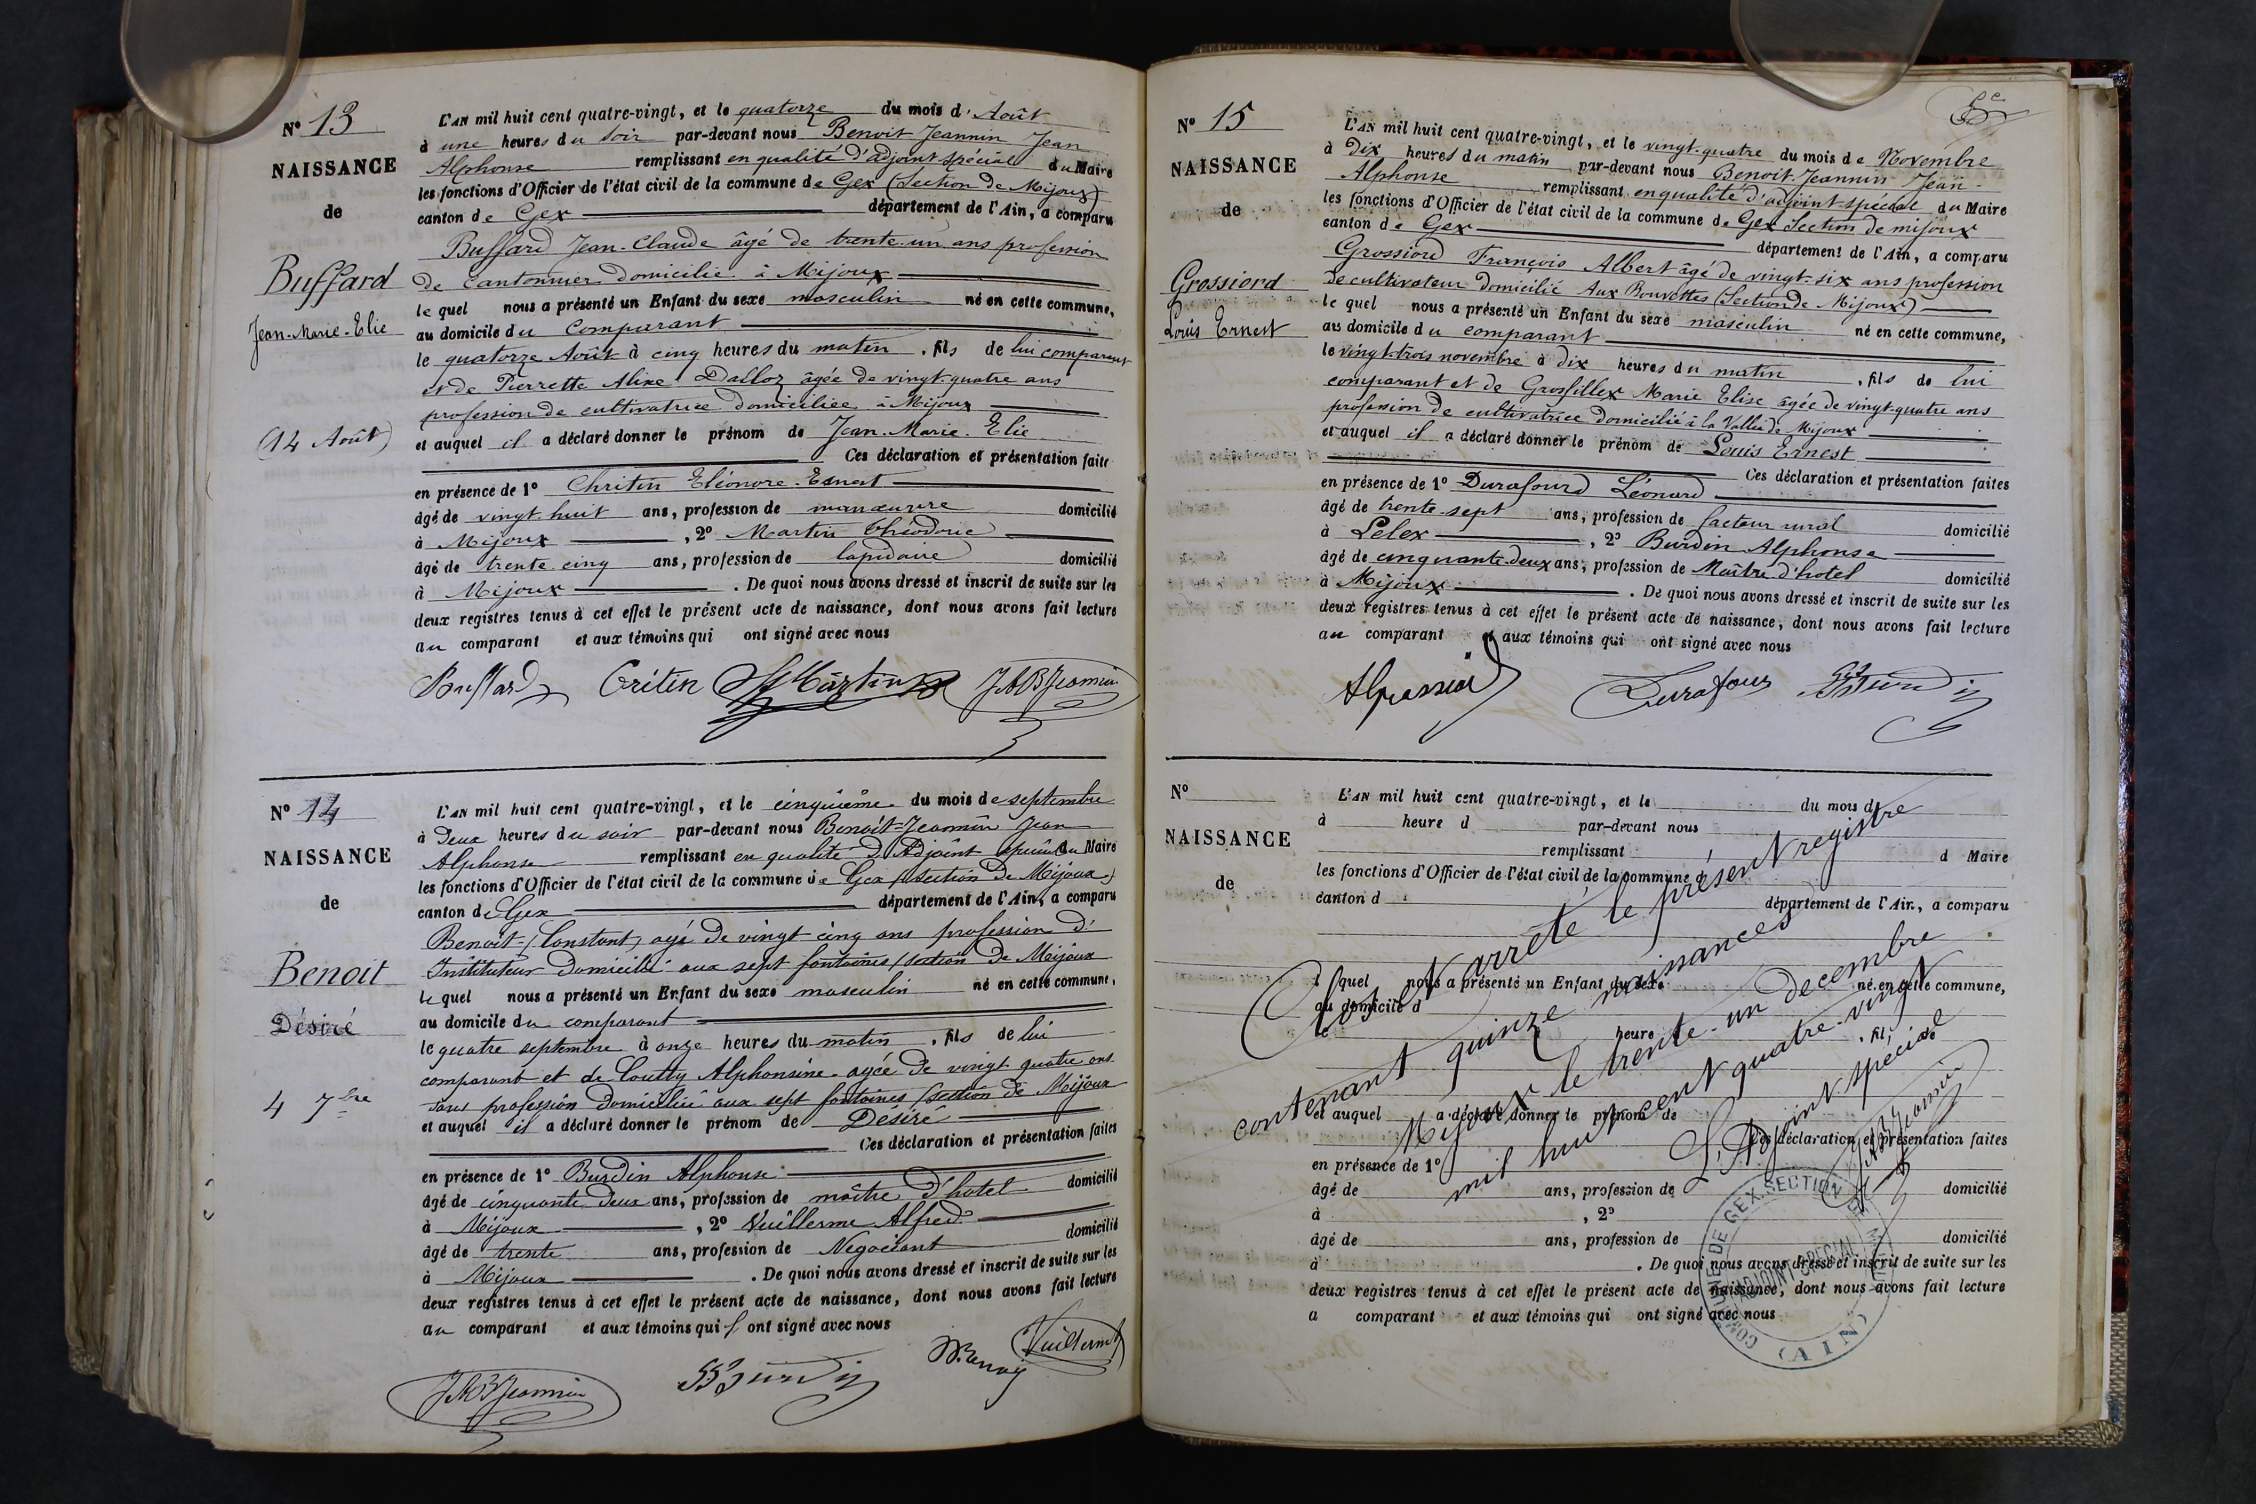 N° 13
NAISSANCE
de
Buffard
Jean-Marie-Elie
(14 Août)
L'AN mil huit cent quatre-vingt, et le quatorze du mois d'Août
à une heures du soir par-devant nous Benoit Jeannin Jean
Alphonse remplissant en qualité d'adjoint spécial du Maire
les fonctions d'Officier de l'état civil de la commune de Gex (Section de Mijoux)
canton de Gex département de l'Ain, a comparu
Buffard Jean-Claude âgé de trente-un ans profession
de Cantonnier domicilié à Mijoux
le quel nous a présenté un Enfant du sexe masculin né en cette commune,
au domicile du comparant
le quatorze Août à cinq heures du matin, fils de lui comparant
et de Pierrette Alixe Dalloz âgée de vingt-quatre ans
profession de cultivatrice domiciliée à Mijoux
et auquel il a déclaré donner le prénom de Jean-Marie-Elie
Ces déclaration et présentation faite
en présence de 1° Chritin Eléonore-Ernest
âgé de vingt-huit ans, profession de manœuvre domicilié
à Mijoux, 2° Martin Théodore
âgé de trente cinq ans, profession de lapidaire domicilié
à Mijoux. De quoi nous avons dressé et inscrit de suite sur les
deux registres tenus à cet effet le présent acte de naissance, dont nous avons fait lecture
au comparant et aux témoins qui ont signé avec nous
Buffard Critin Martin JABJeannin
N° 14
NAISSANCE
de
Benoit
Désiré
4 7bre
L'AN mil huit cent quatre-vingt, et le cinquième du mois de septembre
à Deux heures du soir par-devant nous Benoit-Jeannin Jean
Alphonse remplissant en qualité d'Adjoint spécial du Maire
les fonctions d'Officier de l'état civil de la commune de Gex (section de Mijoux)
canton de Gex département de l'Ain, a comparu
Benoit-(Constant) agé de vingt-cinq ans profession d'
Instituteur domicilié aux sept fontaines (section de Mijoux
le quel nous a présenté un Enfant du sexe masculin né en cette commune,
au domicile du comparant
le quatre septembre à onze heures du matin, fils de lui
comparant et de Coutty Alphonsine agée de vingt quatre ans
sans profession domiciliée aux sept fontaines (section de Mijoux
et auquel il a déclaré donner le prénom de Désiré
Ces déclaration et présentation faites
en présence de 1° Burdin Alphonse
âgé de cinquante deux ans, profession de maître d'hotel domicilié
à Mijoux, 2° Vuillerme Alfred
âgé de trente ans, profession de Négociant domicilié
à Mijoux. De quoi nous avons dressé et inscrit de suite sur les
deux registres tenus à cet effet le présent acte de naissance, dont nous avons fait lecture
au comparant et aux témoins qui ont signé avec nous
JABJeannin Burdin Benoit Vuillerme
N° 15
NAISSANCE
de
Grossiord
Louis Ernest
L'AN mil huit cent quatre-vingt, et le vingt-quatre du mois de Novembre
à Dix heures du matin par-devant nous Benoit-Jeannin Jean-
Alphonse remplissant en qualité d'adjoint-spécial du Maire
les fonctions d'Officier de l'état civil de la commune de Gex Section de mijoux
canton de Gex département de l'Ain, a comparu
Grossiord François Albert âgé de vingt-six ans profession
de cultivateur domicilié Aux Bouvettes (Section de Mijoux)
le quel nous a présenté un Enfant du sexe masculin né en cette commune,
au domicile du comparant
le vingt-trois novembre à dix heures du matin, fils de lui
comparant et de Grosfillex Marie Elise âgée de vingt-quatre ans
profession de cultivatrice domicilié à la Vallée de Mijoux
et auquel il a déclaré donner le prénom de Louis Ernest
Ces déclaration et présentation faites
en présence de 1° Durafourd Léonard
âgé de trente-sept ans, profession de facteur rural domicilié
à Lelex, 2° Burdin Alphonse
âgé de cinquante-deux ans, profession de Maître d'hotel domicilié
à Mijoux. De quoi nous avons dressé et inscrit de suite sur les
deux registres tenus à cet effet le présent acte de naissance, dont nous avons fait lecture
au comparant et aux témoins qui ont signé avec nous
AGrossiord Durafour Burdin
N°
NAISSANCE
de
L'AN mil huit cent quatre-vingt, et le du mois d
à heure d par-devant nous
remplissant d Maire
les fonctions d'Officier de l'état civil de la commune d
canton d département de l'Ain, a comparu
l quel nous a présenté un Enfant du sexe né en cette commune,
au domicile d
le heure , fil de
et auquel a déclaré donner le prénom de
Ces déclaration et présentation faites
en présence de 1°
âgé de ans, profession de domicilié
à , 2°
âgé de ans, profession de domicilié
à . De quoi nous avons dressé et inscrit de suite sur les
deux registres tenus à cet effet le présent acte de naissance, dont nous avons fait lecture
a comparant et aux témoins qui ont signé avec nous
Clos et arrêté le présent registre
contenant quinze naissances
Mijoux le trente-un decembre
mil huit cent quatre-vingt
L'Adjoint spécial
JABJeannin
COMMUNE DE GEX. SECTION DE MIJOUX
ADJOINT SPECIAL
(AIN)